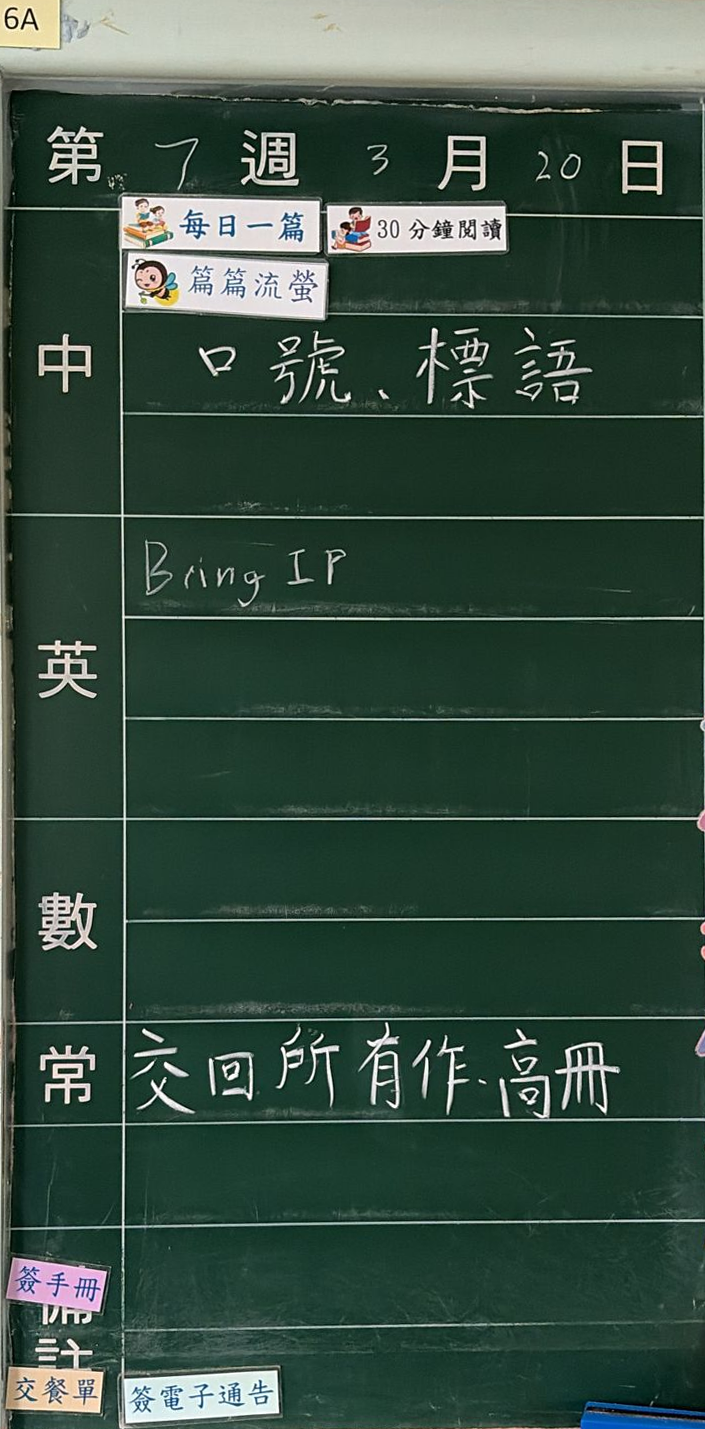 6A
第 7 週 3 月 20 日
每日一篇 30分鐘閱讀
篇篇流螢
中 口號、標語
英 Bring IP
數
常 交回所有作、高冊
簽手冊
備註
交餐單 簽電子通告